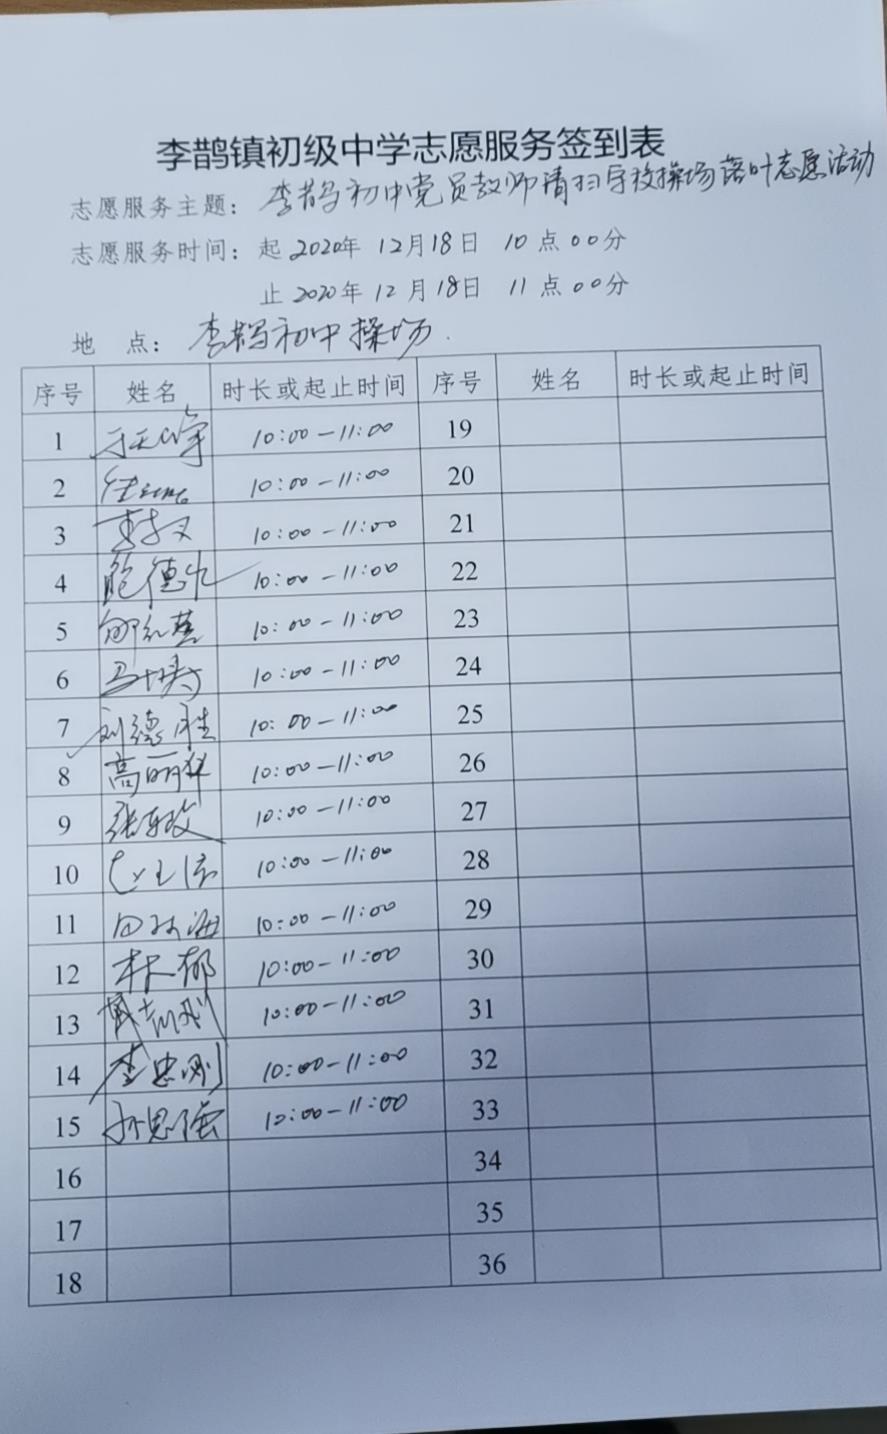 李鹊镇初级中学志愿服务签到表
志愿服务主题：李鹊初中党员教师清扫学校操场落叶志愿活动
志愿服务时间：起2020年12月18日 10点00分
止2020年12月18日 11点00分
地 点：李鹊初中操场.
序号 姓名 时长或起止时间 序号 姓名 时长或起止时间
1 10:00-11:00 19
2 10:00-11:00 20
3 10:00-11:00 21
4 10:00-11:00 22
5 10:00-11:00 23
6 10:00-11:00 24
7 刘德胜 10:00-11:00 25
8 高丽华 10:00-11:00 26
9 10:00-11:00 27
10 10:00-11:00 28
11 10:00-11:00 29
12 林郁 10:00-11:00 30
13 10:00-11:00 31
14 李忠刚 10:00-11:00 32
15 孙思强 10:00-11:00 33
16 34
17 35
18 36